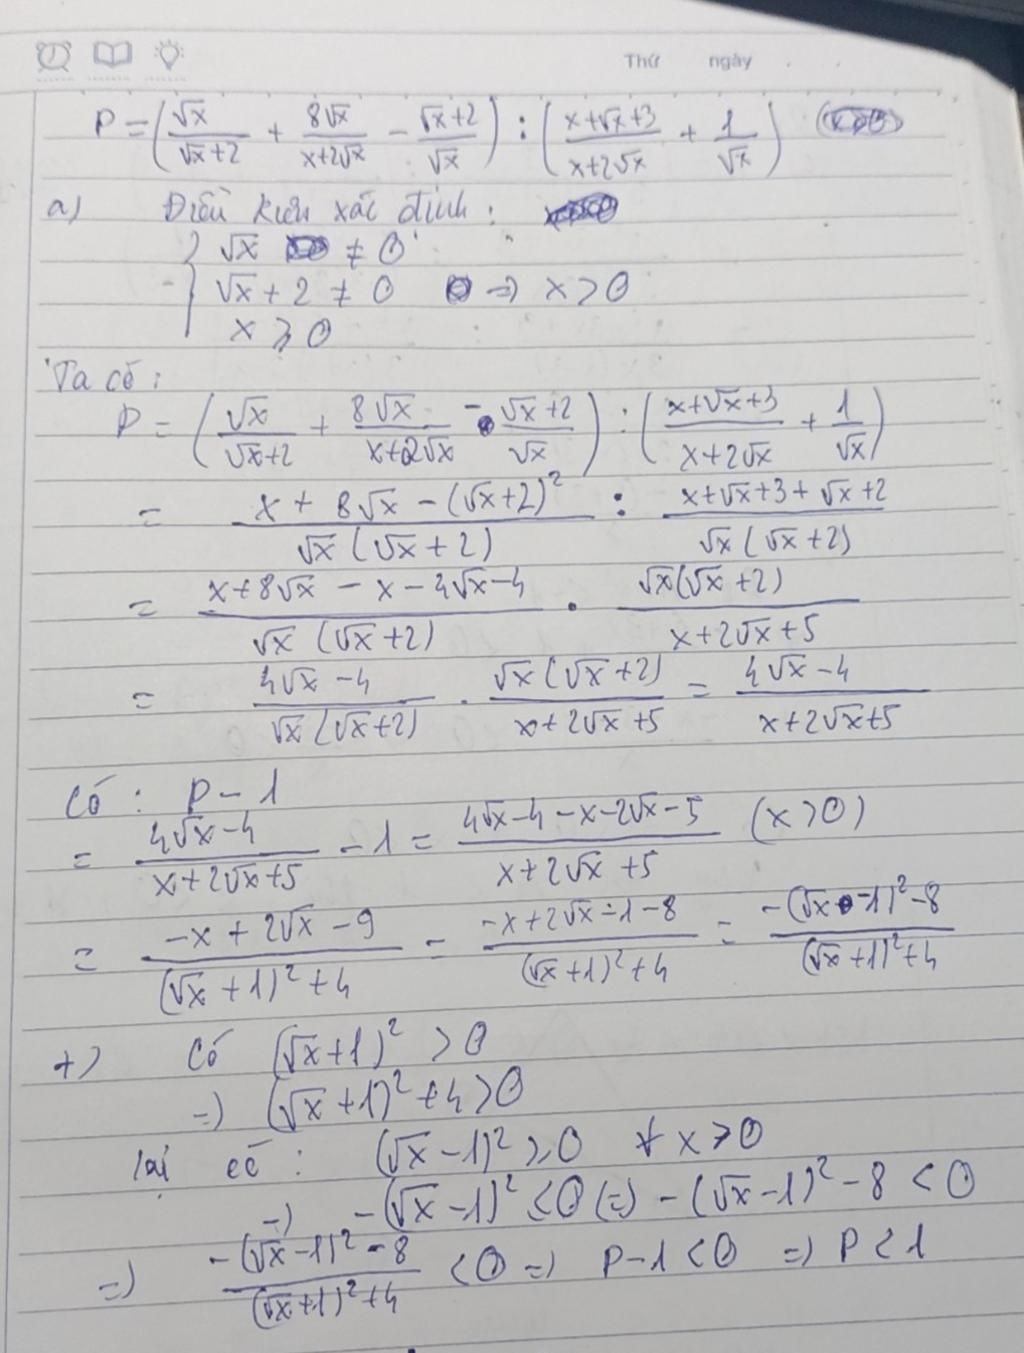 Thứ ngày
P = (√x/(√x+2) + 8√x/(x+2√x) − (√x+2)/√x) : ((x+√x+3)/(x+2√x) + 1/√x)
a) Điều kiện xác định:
√x ≠ 0
√x + 2 ≠ 0 => x > 0
x ≥ 0
Ta có:
P = (√x/(√x+2) + 8√x/(x+2√x) − (√x+2)/√x) : ((x+√x+3)/(x+2√x) + 1/√x)
= (x + 8√x − (√x+2)²)/(√x(√x+2)) : (x+√x+3+√x+2)/(√x(√x+2))
= (x+8√x − x − 4√x − 4)/(√x(√x+2)) . (√x(√x+2))/(x+2√x+5)
= (4√x − 4)/(√x(√x+2)) . (√x(√x+2))/(x+2√x+5) = (4√x − 4)/(x+2√x+5)
Có : P − 1
= (4√x−4)/(x+2√x+5) − 1 = (4√x−4−x−2√x−5)/(x+2√x+5) (x>0)
= (−x+2√x−9)/((√x+1)²+4) = (−x+2√x−1−8)/((√x+1)²+4) = (−(√x−1)²−8)/((√x+1)²+4)
+) Có (√x+1)² > 0
=> (√x+1)²+4 > 0
lại có : (√x−1)² ≥ 0 ∀ x > 0
=> −(√x−1)² ≤ 0 (=) −(√x−1)² − 8 < 0
=> (−(√x−1)²−8)/((√x+1)²+4) < 0 => P−1 < 0 => P < 1